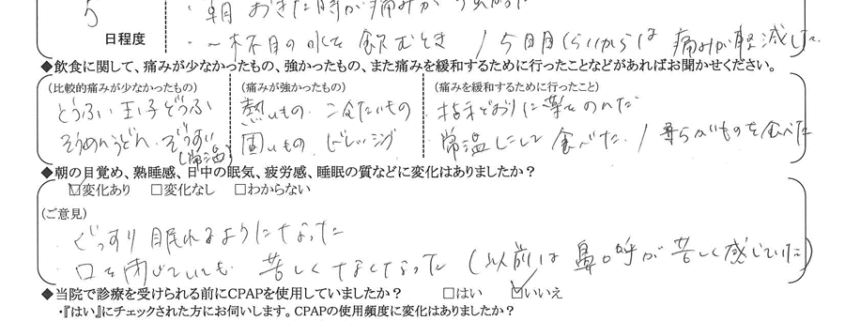 5
日程度
・朝おきた時が痛みが
・一杯目の水を飲むとき / 5日目くらいからは痛みが軽減した
◆飲食に関して、痛みが少なかったもの、強かったもの、また痛みを緩和するために行ったことなどがあればお聞かせください。
(比較的痛みが少なかったもの) (痛みが強かったもの) (痛みを緩和するために行ったこと)
とうふ 玉子どうふ 熱いもの 冷たいもの 指示どおりに薬をのんだ
そうめん うどん ぞうすい(常温) 固いもの ドレッシング 常温にして食べた / 柔らかいものを食べた
◆朝の目覚め、熟睡感、日中の眠気、疲労感、睡眠の質などに変化はありましたか?
☑変化あり □変化なし □わからない
(ご意見)
・ぐっすり眠れるようになった
・口を閉じていても苦しくなくなった(以前は鼻呼が苦しく感じていた)
◆当院で診療を受けられる前にCPAPを使用していましたか? □はい ☑いいえ
・『はい』にチェックされた方にお伺いします。CPAPの使用頻度に変化はありましたか?